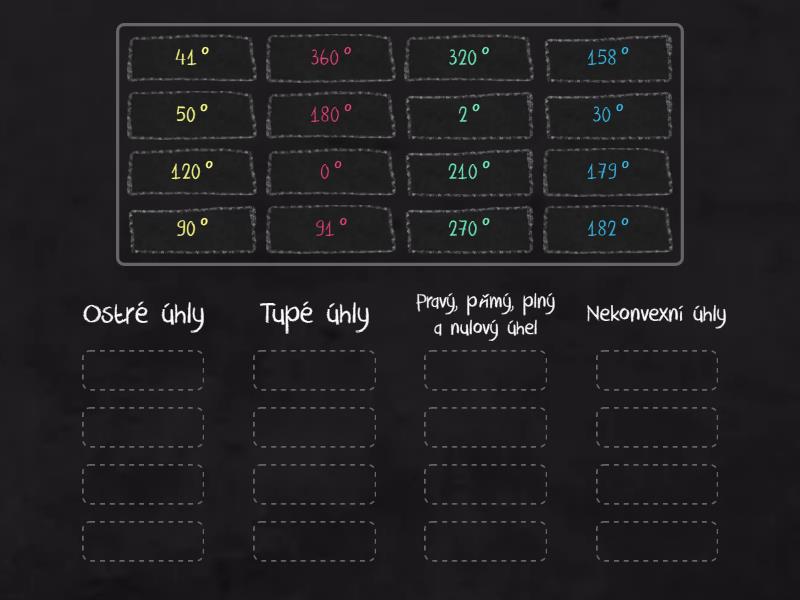 41°
360°
320°
158°
50°
180°
2°
30°
120°
0°
210°
179°
90°
91°
270°
182°
Ostré úhly
Tupé úhly
Pravý, přímý, plný
a nulový úhel
Nekonvexní úhly